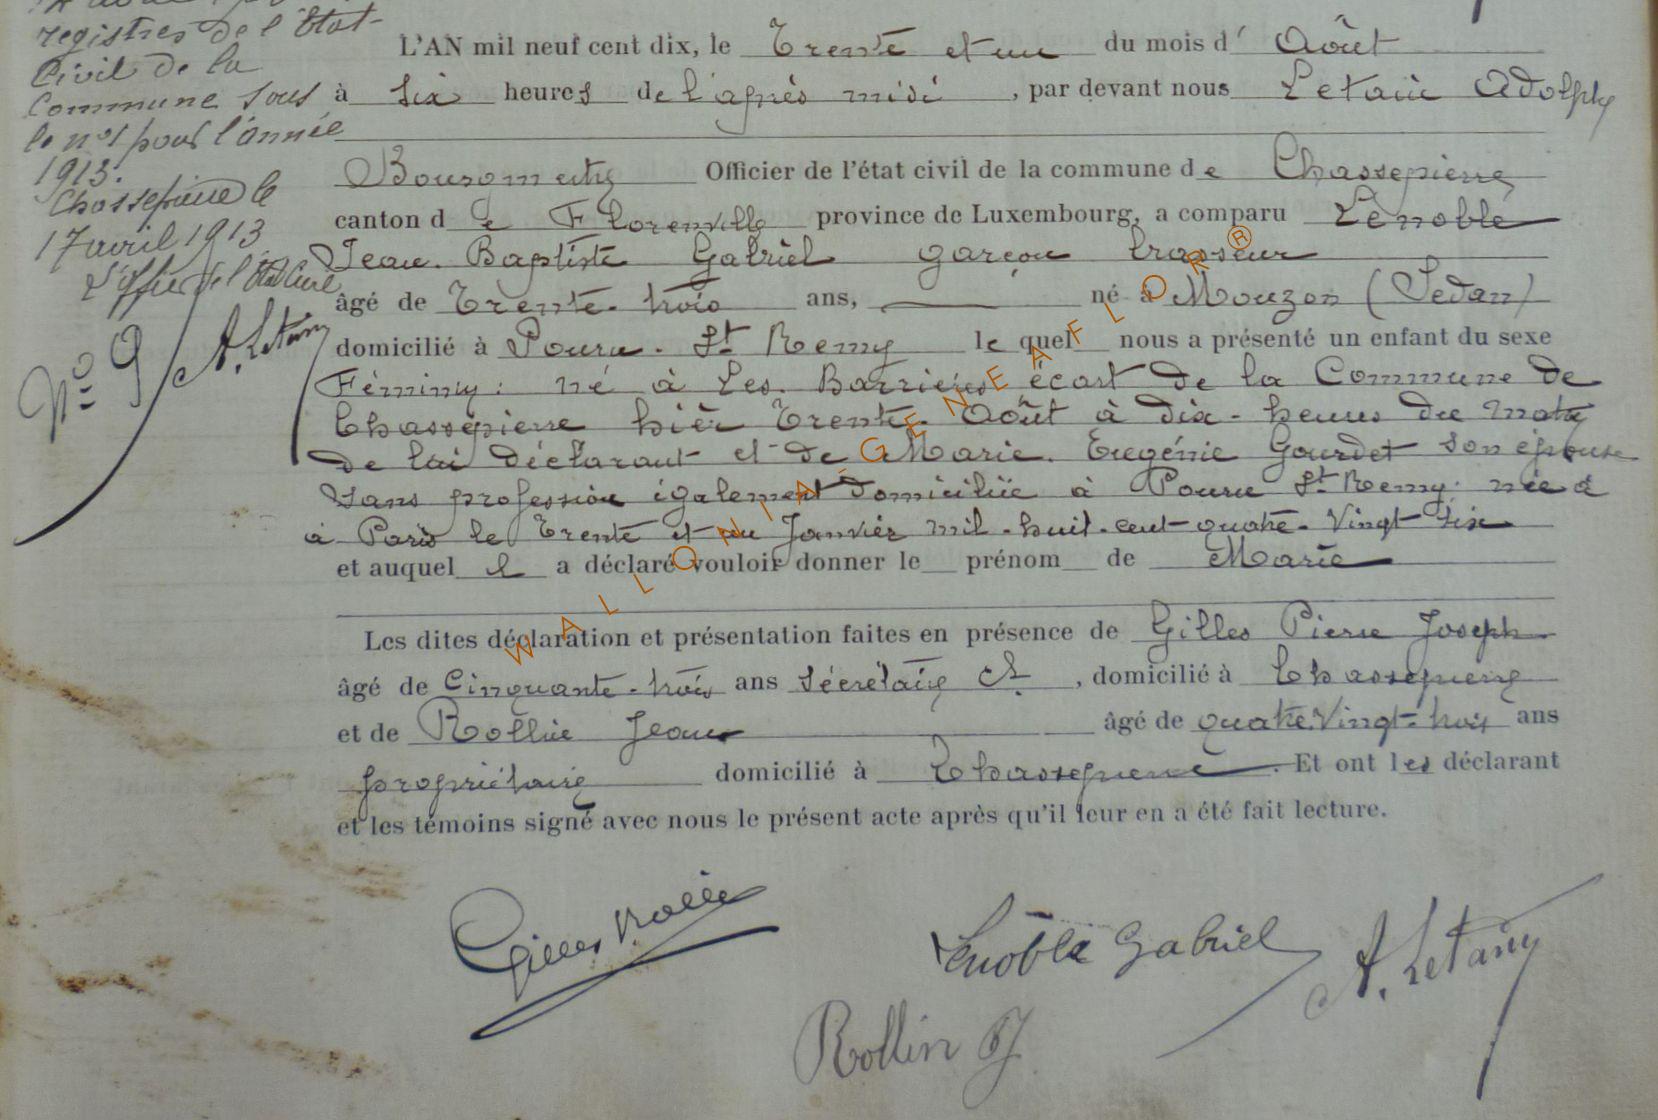 registres de l'Etat-
Civil de la
Commune sous
le n° 1 pour l'année
1913.
Chassepierre le
17 avril 1913
A. Letany
N° 9
L'AN mil neuf cent dix, le Trente et un du mois d' Août
à six heures de l'après midi, par devant nous Letani Adolphe
Bourgmestre Officier de l'état civil de la commune de Chassepierre
canton de Florenville province de Luxembourg, a comparu Lenoble
Jean-Baptiste Gabriel garçon brasseur
âgé de Trente-trois ans, né à Mouzon (Sedan)
domicilié à Pouru-St Remy lequel nous a présenté un enfant du sexe
Féminin: né à Les Barrières écart de la Commune de
Chassepierre hièr Trente Août à dix-heures du matin
de lui déclarant et de Marie-Eugénie Gourdet son épouse
sans profession également domiciliée à Pouru St Remy née à
à Paris le Trente et un Janvier mil-huit-cent-quatre-Vingt-six
et auquel il a déclaré vouloir donner le prénom de Marie
Les dites déclaration et présentation faites en présence de Gilles Pierre Joseph
âgé de Cinquante-trois ans Sécrétaire Cl, domicilié à Chassepierre
et de Rollin Jean âgé de quatre-Vingt-trois ans
propriétaire domicilié à Chassepierre. Et ont les déclarant
et les témoins signé avec nous le présent acte après qu'il leur en a été fait lecture.
Gilles
Lenoble Gabriel
A. Letany
Rollin J
WALLONIA-GENEAFLOR®